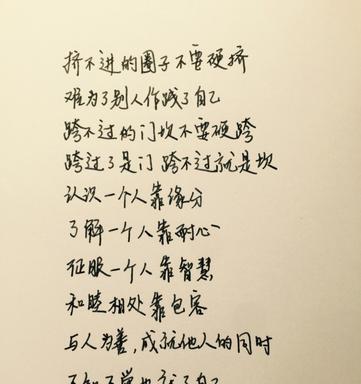 挤不进的圈子不要硬挤
难为了别人作践了自己
跨不过的门坎不要硬跨
跨过了是门 跨不过就是坎
认识一个人靠缘分
了解一个人靠耐心
征服一个人靠智慧
和睦相处靠包容
与人为善,成就他人的同时
不知不觉也